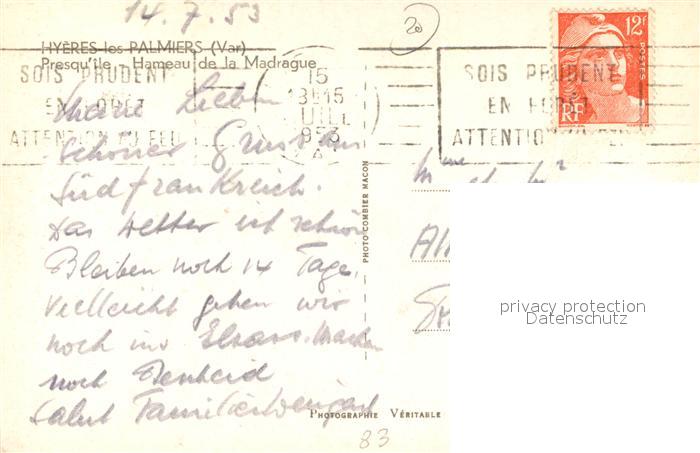 14.7.53
20
HYÈRES-les PALMIERS (Var)
Presqu'île - Hameau de la Madrague
SOIS PRUDENT
EN FORET
ATTENTION AU FEU
15
13H15
JUIL
953
SOIS PRUDENT
EN FORET
ATTENTION AU FEU
12F
POSTES
RF
Lieben
Schöner Gruss aus
Südfrankreich.
Das Wetter ist schön
Bleiben noch 14 Tage,
Vielleicht gehen wir
noch ins Elsass. Machen
noch
Salut Familie
Mme
PHOTO-COMBIER MACON
privacy protection
Datenschutz
PHOTOGRAPHIE VÉRITABLE
83